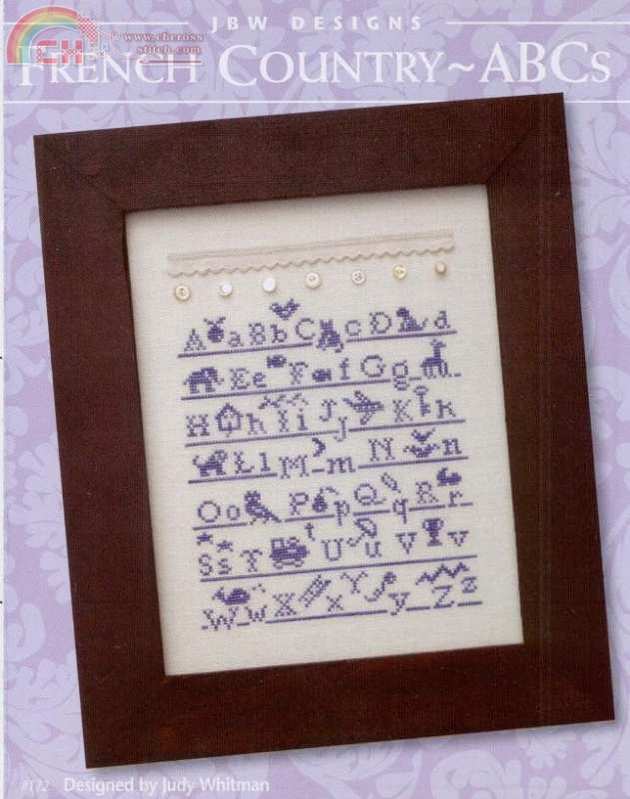 CH
www.chcross
stitch.com
JBW DESIGNS
FRENCH COUNTRY~ABCS
A a B b C c D d
E e F f G g
H h I i J j K k
L l M m N n
O o P p Q q R r
S s T U u V v
W w X x Y y Z z
#172 Designed by Judy Whitman